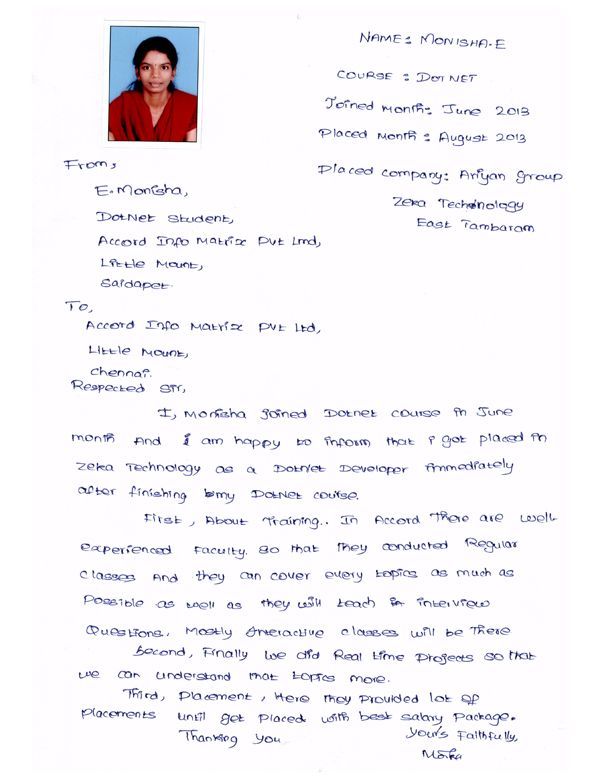 NAME: MONISHA.E
COURSE : DOT NET
Joined Month: June 2013
Placed Month : August 2013
Placed Company: Ariyan Group
Zeka Technology
East Tambaram
From,
E.Monisha,
DotNet Student,
Accord Info Matrix Pvt Lmd,
Little Mount,
Saidapet.
To,
Accord Info Matrix Pvt Ltd,
Little Mount,
Chennai.
Respected Sir,
I, Monisha joined Dotnet course in June
month And I am happy to inform that i got placed in
Zeka Technology as a DotNet Developer immediately
after finishing my DotNet course.
First, About Training.. In Accord There are well
experienced Faculty. So that they conducted Regular
classes And they can cover every topics as much as
Possible as well as they will teach in interview
Questions. Mostly Interactive classes will be There
Second, Finally we did Real time Projects so that
we can understand that topics more.
Third, Placement, Here they provided lot of
Placements until get placed with best salary Package.
Thanking You
Yours Faithfully,